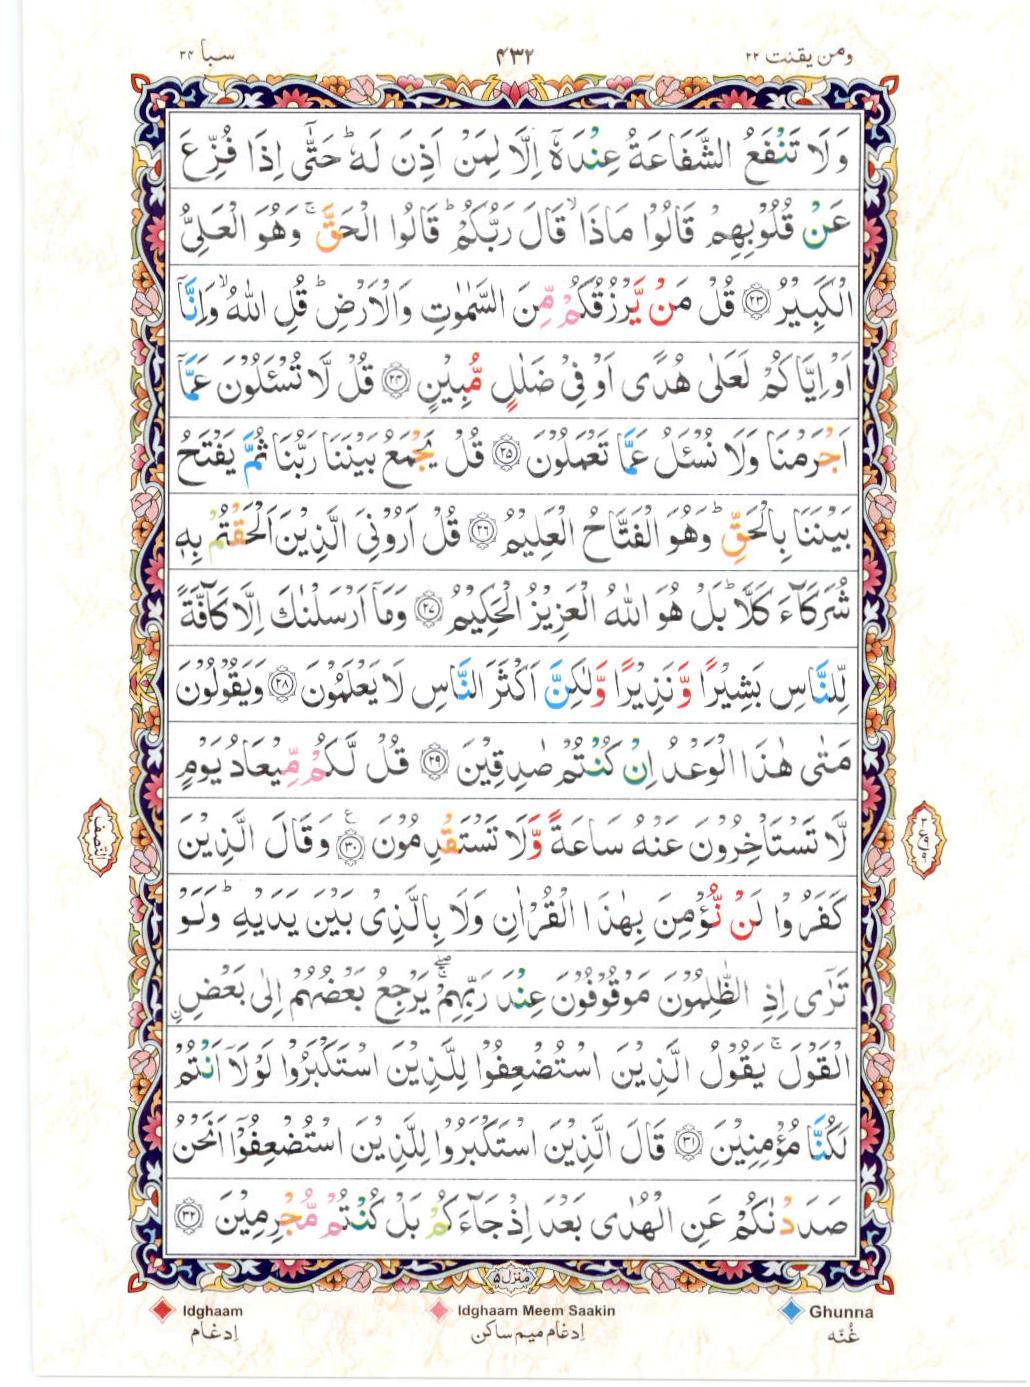 ومن یقنت ۲۲
۴۳۲
سبا ۳۴
وَلَا تَنْفَعُ الشَّفَاعَةُ عِنْدَهٗۤ اِلَّا لِمَنْ اَذِنَ لَهٗ ؕ حَتّٰۤى اِذَا فُزِّعَ
عَنْ قُلُوْبِهِمْ قَالُوْا مَاذَا ۙ قَالَ رَبُّكُمْ ؕ قَالُوا الْحَقَّ ۚ وَهُوَ الْعَلِىُّ
الْكَبِيْرُ ﴿۲۳﴾ قُلْ مَنْ يَّرْزُقُكُمْ مِّنَ السَّمٰوٰتِ وَالْاَرْضِ ؕ قُلِ اللّٰهُ ۙ وَاِنَّاۤ
اَوْ اِيَّاكُمْ لَعَلٰى هُدًى اَوْ فِىْ ضَلٰلٍ مُّبِيْنٍ ﴿۲۴﴾ قُلْ لَّا تُسْـَٔلُوْنَ عَمَّاۤ
اَجْرَمْنَا وَلَا نُسْـَٔلُ عَمَّا تَعْمَلُوْنَ ﴿۲۵﴾ قُلْ يَجْمَعُ بَيْنَنَا رَبُّنَا ثُمَّ يَفْتَحُ
بَيْنَنَا بِالْحَقِّ ؕ وَهُوَ الْفَتَّاحُ الْعَلِيْمُ ﴿۲۶﴾ قُلْ اَرُوْنِىَ الَّذِيْنَ اَلْحَقْتُمْ بِهٖ
شُرَكَآءَ كَلَّا ؕ بَلْ هُوَ اللّٰهُ الْعَزِيْزُ الْحَكِيْمُ ﴿۲۷﴾ وَمَاۤ اَرْسَلْنٰكَ اِلَّا كَآفَّةً
لِّلنَّاسِ بَشِيْرًا وَّنَذِيْرًا وَّلٰكِنَّ اَكْثَرَ النَّاسِ لَا يَعْلَمُوْنَ ﴿۲۸﴾ وَيَقُوْلُوْنَ
مَتٰى هٰذَا الْوَعْدُ اِنْ كُنْتُمْ صٰدِقِيْنَ ﴿۲۹﴾ قُلْ لَّكُمْ مِّيْعَادُ يَوْمٍ
لَّا تَسْتَاْخِرُوْنَ عَنْهُ سَاعَةً وَّلَا تَسْتَقْدِمُوْنَ ﴿۳۰﴾ ع وَقَالَ الَّذِيْنَ
كَفَرُوْا لَنْ نُّؤْمِنَ بِهٰذَا الْقُرْاٰنِ وَلَا بِالَّذِىْ بَيْنَ يَدَيْهِ ؕ وَلَوْ
تَرٰۤى اِذِ الظّٰلِمُوْنَ مَوْقُوْفُوْنَ عِنْدَ رَبِّهِمْ ۖۚ يَرْجِعُ بَعْضُهُمْ اِلٰى بَعْضِ ۨ
الْقَوْلَ ۚ يَقُوْلُ الَّذِيْنَ اسْتُضْعِفُوْا لِلَّذِيْنَ اسْتَكْبَرُوْا لَوْلَاۤ اَنْتُمْ
لَكُنَّا مُؤْمِنِيْنَ ﴿۳۱﴾ قَالَ الَّذِيْنَ اسْتَكْبَرُوْا لِلَّذِيْنَ اسْتُضْعِفُوْۤا اَنَحْنُ
صَدَدْنٰكُمْ عَنِ الْهُدٰى بَعْدَ اِذْ جَآءَكُمْ بَلْ كُنْتُمْ مُّجْرِمِيْنَ ﴿۳۲﴾
النصف
منزل ۵
Idghaam
Idghaam Meem Saakin
Ghunna
اِدغام
اِدغام میم ساکن
غُنّه